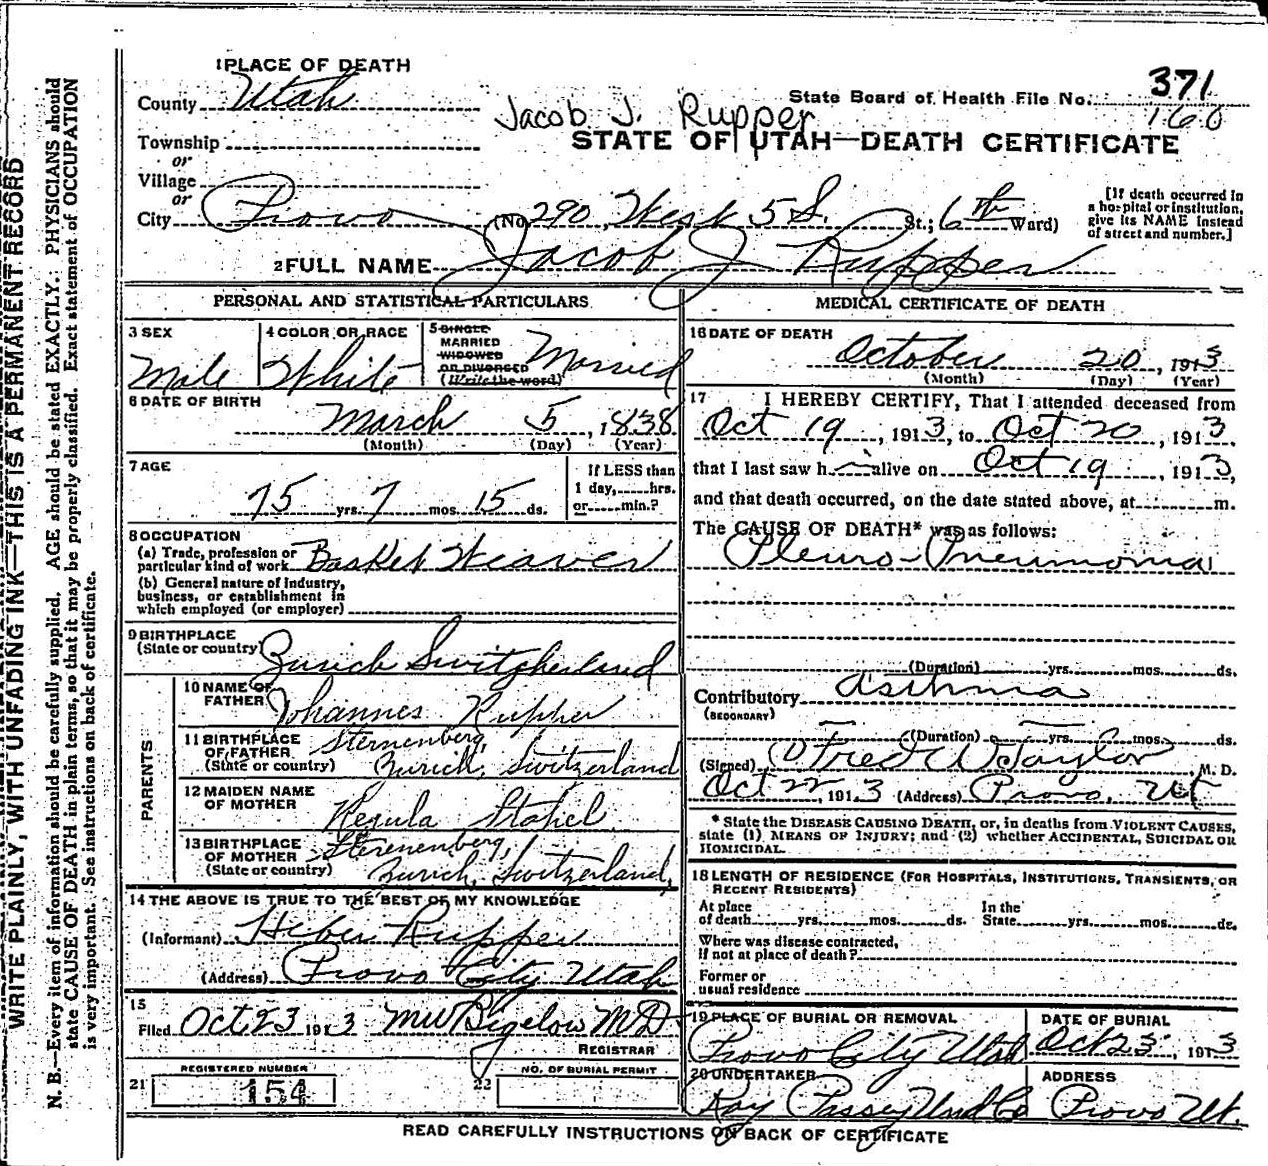 1 PLACE OF DEATH
County Utah
State Board of Health File No. 371
160
Jacob J. Rupper
Township
or
Village
or
City Provo
STATE OF UTAH—DEATH CERTIFICATE
(No 290, West 5 S. St.; 6th Ward)
[If death occurred in
a hospital or institution,
give its NAME instead
of street and number.]
2 FULL NAME Jacob J Rupper
PERSONAL AND STATISTICAL PARTICULARS
3 SEX
Male
4 COLOR OR RACE
White
5 SINGLE
MARRIED
WIDOWED
OR DIVORCED
(Write the word)
Married
6 DATE OF BIRTH
March 5, 1838
(Month) (Day) (Year)
7 AGE
75 yrs. 7 mos. 15 ds.
If LESS than
1 day,......hrs.
or......min.?
8 OCCUPATION
(a) Trade, profession or
particular kind of work Basket Weaver
(b) General nature of industry,
business, or establishment in
which employed (or employer)
9 BIRTHPLACE
(State or country) Zurich Switzherland
PARENTS
10 NAME OF
FATHER Johannes Rupper
11 BIRTHPLACE
OF FATHER
(State or country) Sternenberg,
Zurich, Switzerland
12 MAIDEN NAME
OF MOTHER Regula Stahel
13 BIRTHPLACE
OF MOTHER
(State or country) Sterenenberg,
Zurich, Switzerland,
14 THE ABOVE IS TRUE TO THE BEST OF MY KNOWLEDGE
(Informant) Heber Rupper
(Address) Provo City Utah
15
Filed Oct 23 1913 MW Bigelow MD
REGISTRAR
21 REGISTERED NUMBER
154
22 NO. OF BURIAL PERMIT
MEDICAL CERTIFICATE OF DEATH
16 DATE OF DEATH
October 20, 1913
(Month) (Day) (Year)
17 I HEREBY CERTIFY, That I attended deceased from
Oct 19, 1913, to Oct 20, 1913,
that I last saw h im alive on Oct 19, 1913,
and that death occurred, on the date stated above, at m.
The CAUSE OF DEATH* was as follows:
Pleuro-Pneumonia
(Duration) yrs. mos. ds.
Contributory Asthma
(SECONDARY)
(Duration) yrs. mos. ds.
(Signed) Fred W Taylor, M. D.
Oct 22, 1913 (Address) Provo, Ut
* State the DISEASE CAUSING DEATH, or, in deaths from VIOLENT CAUSES,
state (1) MEANS OF INJURY; and (2) whether ACCIDENTAL, SUICIDAL OR
HOMICIDAL.
18 LENGTH OF RESIDENCE (FOR HOSPITALS, INSTITUTIONS, TRANSIENTS, OR
RECENT RESIDENTS)
At place
of death yrs. mos. ds.
In the
State yrs. mos. ds.
Where was disease contracted,
If not at place of death?
Former or
usual residence
19 PLACE OF BURIAL OR REMOVAL
Provo City Utah
DATE OF BURIAL
Oct 23, 1913
20 UNDERTAKER
Ray Passey Und Co
ADDRESS
Provo Ut.
READ CAREFULLY INSTRUCTIONS ON BACK OF CERTIFICATE
WRITE PLAINLY, WITH UNFADING INK—THIS IS A PERMANENT RECORD
N. B.—Every item of information should be carefully supplied. AGE should be stated EXACTLY. PHYSICIANS should
state CAUSE OF DEATH in plain terms, so that it may be properly classified. Exact statement of OCCUPATION
is very important. See instructions on back of certificate.